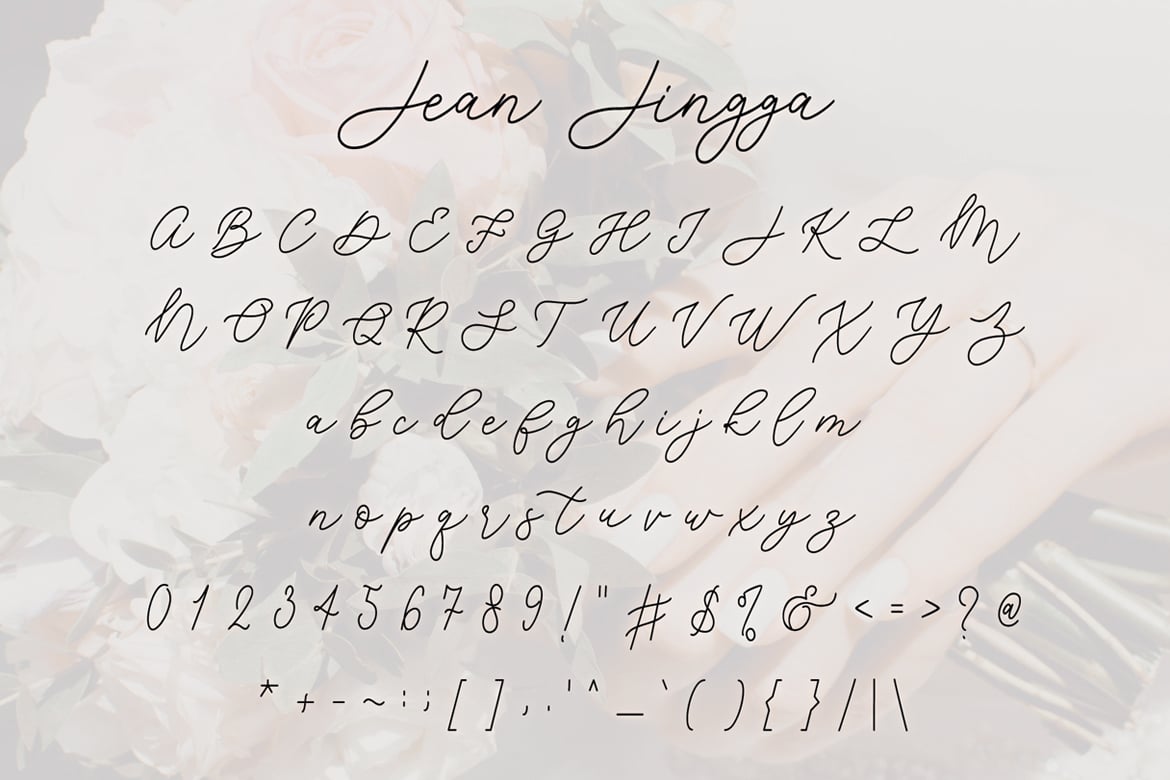 Jean Jingga
A B C D E F G H I J K L M
N O P Q R S T U V W X Y Z
a b c d e f g h i j k l m
n o p q r s t u v w x y z
0 1 2 3 4 5 6 7 8 9 ! " # $ % & < = > ? @
* + - ~ : ; [ ] , . ' ^ _ ` ( ) { } / | \